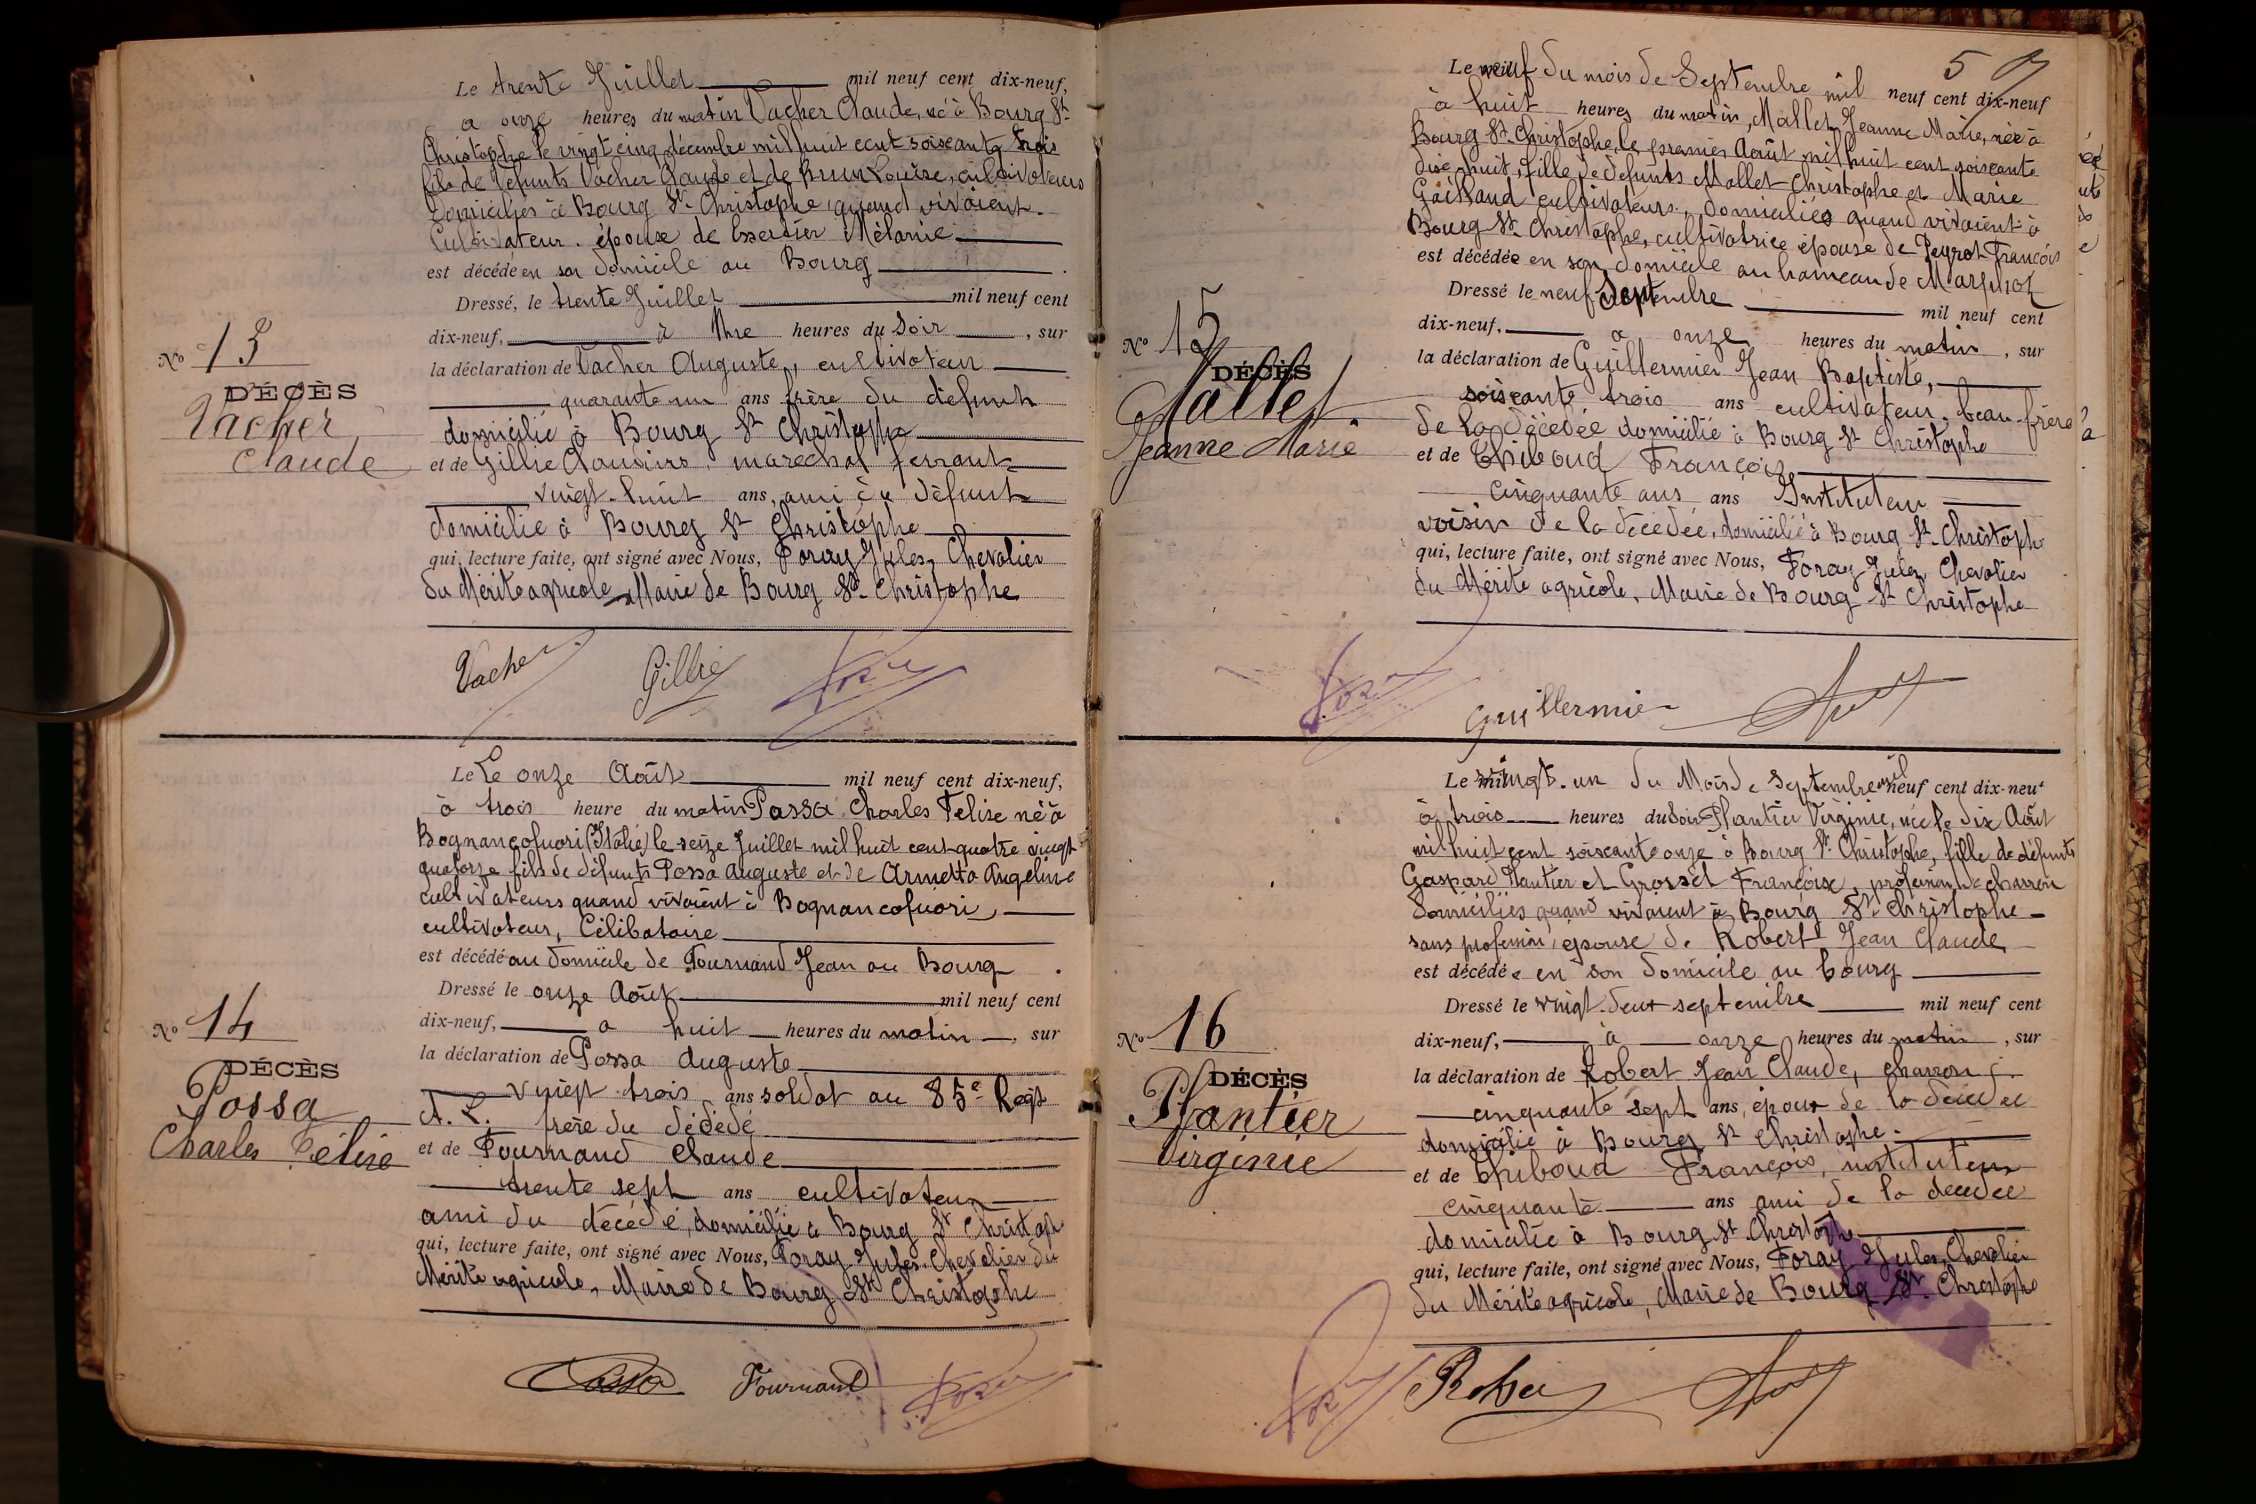 Le trente Juillet mil neuf cent dix-neuf,
a onze heures du matin Vacher Claude, né à Bourg St
Christophe le vingt cinq décembre mil huit cent soixante trois
fils de défunts Vacher Claude et de Brun Louise, cultivateurs
domiciliés à Bourg St Christophe quand vivaient.
Cultivateur. époux de Essertier Mélanie
est décédé en son domicile au Bourg
Dressé, le trente Juillet mil neuf cent
dix-neuf, à une heures du Soir, sur
la déclaration de Vacher Auguste, cultivateur
quarante un ans frère du défunt
domicilié à Bourg St Christophe
et de Gillie maréchal ferrant
vingt-huit ans, ami du défunt
domicilié à Bourg St Christophe
qui, lecture faite, ont signé avec Nous, Foray Jules, Chevalier
du Mérite agricole Maire de Bourg St Christophe
No 13
DÉCÈS
Vacher
Claude
Vacher Gillie
Le Le onze Août mil neuf cent dix-neuf,
à trois heure du matin Possa Charles Felixe né à
Bognancofuori (Italie) le seize Juillet mil huit cent quatre vingt
quatorze fils de défunts Possa Auguste et de Arnetta Angeline
cultivateurs quand vivaient à Bognancofuori,
cultivateur, Célibataire
est décédé au domicile de Fournand Jean au Bourg.
Dressé le onze Août mil neuf cent
dix-neuf, a huit heures du matin, sur
la déclaration de Possa Auguste
vingt trois ans soldat au 85e Regt
A. L. frère du dédédé
et de Fournand Claude
trente sept ans cultivateur
ami du décédé, domicilié à Bourg St Christoph
qui, lecture faite, ont signé avec Nous, Foray Jules Chevalier du
Mérite agricole, Maire de Bourg St Christophe
No 14
DÉCÈS
Possa
Charles Félixe
Possa Fournand
5
Le neuf du mois de Septembre mil neuf cent dix-neuf
à huit heures du matin, Mallet Jeanne Marie, née à
Bourg St Christophe, le premier Août mil huit cent soixante
dix-huit, fille de defunts Mallet Christophe et Marie
Gaillaud cultivateurs, domiciliés quand vivaient à
Bourg St Christophe, cultivatrice épouse de Peyrot François
est décédée en son domicile au hameau de Marfoz
Dressé le neuf Septembre mil neuf cent
dix-neuf, a onze heures du matin, sur
la déclaration de Guillermier Jean Baptiste,
soixante trois ans cultivateur, beau-frère
de la décédée domicilié à Bourg St Christophe
et de Thiboud François
cinquante ans ans Instituteur
voisin de la décédée, domicilié à Bourg St Christoph
qui, lecture faite, ont signé avec Nous, Foray Jules Chevalier
du Mérite agricole, Maire de Bourg St Christophe
No 15
DÉCÈS
Mallet
Jeanne Marie
Guillermier
Le vingt-un du Mois de Septembre mil neuf cent dix-neuf
à trois heures du Soir Plantier Virginie, née le dix Août
mil huit cent soixante onze à Bourg St Christophe, fille de défunts
Gaspard Plantier et Grosset Françoise, profession de charron
domiciliés quand vivaient à Bourg St Christophe
sans profession, épouse de Robert Jean Claude
est décédée en son domicile au bourg
Dressé le vingt-deux septembre mil neuf cent
dix-neuf, à onze heures du matin, sur
la déclaration de Robert Jean Claude, charron
cinquante sept ans, époux de la décédée
domicilié à Bourg St Christophe.
et de Thiboud François, instituteur
cinquante ans ami de la décédée
domicilié à Bourg St Christophe
qui, lecture faite, ont signé avec Nous, Foray Jules, Chevalier
du Mérite agricole, Maire de Bourg St Christophe
No 16
DÉCÈS
Plantier
Virginie
Rober